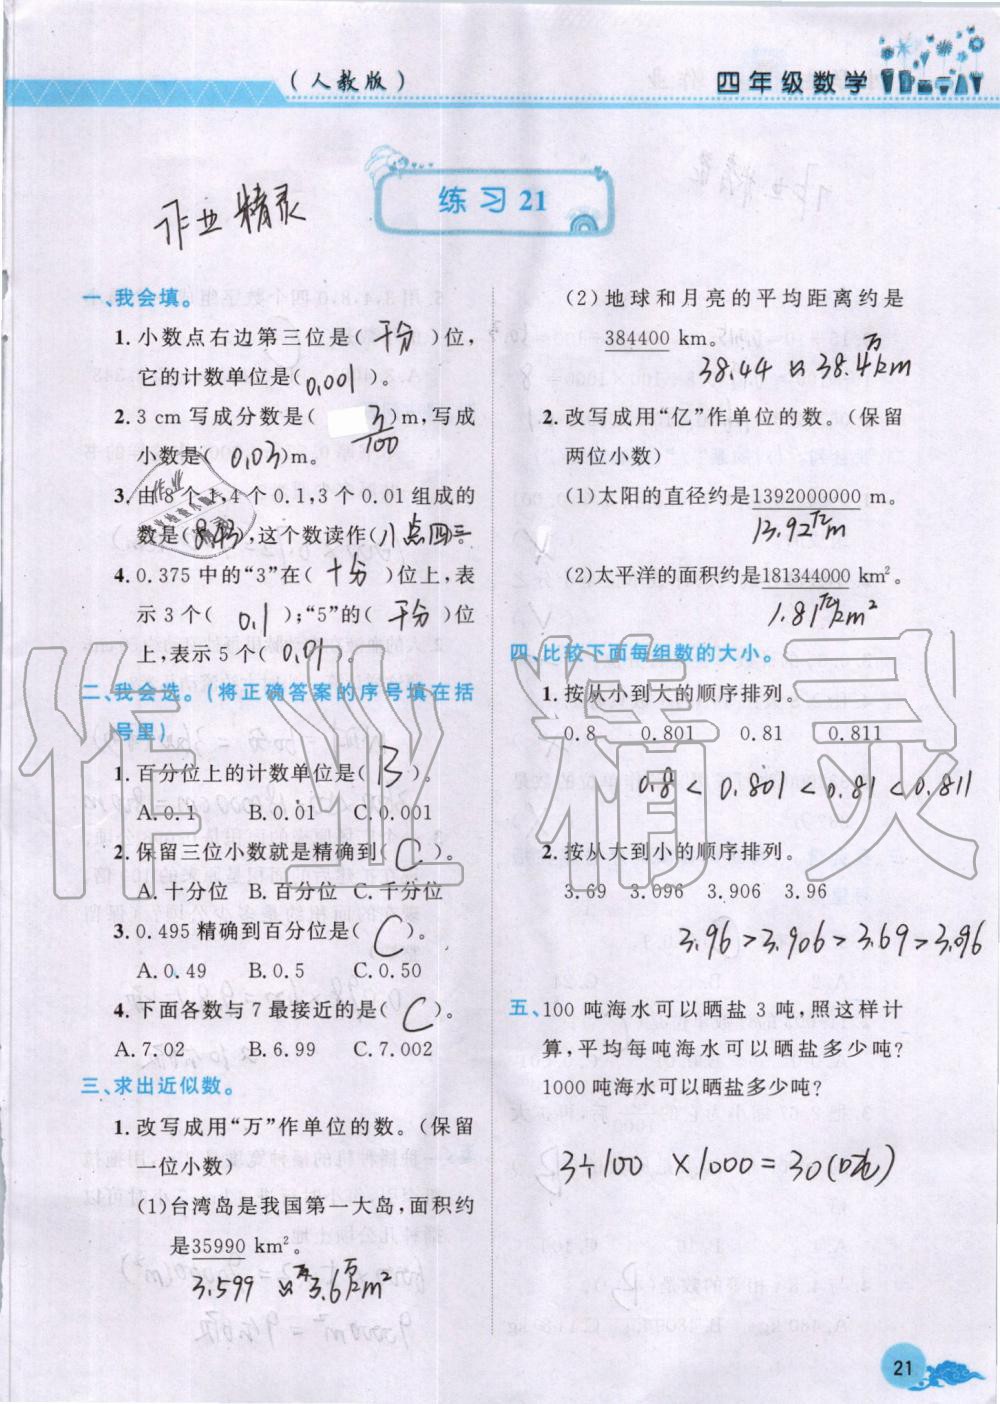 (人教版)
四年级数学
练习21
作业精灵
一、我会填。
1. 小数点右边第三位是( 千分 )位,
它的计数单位是( 0.001 )。
2. 3 cm 写成分数是( 3/100 )m,写成
小数是( 0.03 )m。
3. 由8个1,4个0.1,3个0.01组成的
数是( 8.43 ),这个数读作(八点四三
4. 0.375中的“3”在( 十分 )位上,表
示3个( 0.1 );“5”的( 千分 )位
上,表示5个( 0.01 )。
二、我会选。(将正确答案的序号填在括
号里)
1. 百分位上的计数单位是( B )。
A. 0.1 B. 0.01 C. 0.001
2. 保留三位小数就是精确到( C )。
A. 十分位 B. 百分位 C. 千分位
3. 0.495精确到百分位是( C )。
A. 0.49 B. 0.5 C. 0.50
4. 下面各数与7最接近的是( C )。
A. 7.02 B. 6.99 C. 7.002
三、求出近似数。
1. 改写成用“万”作单位的数。(保留
一位小数)
(1)台湾岛是我国第一大岛,面积约
是35990 km²。
3.599 ≈ 3.6万km²
(2)地球和月亮的平均距离约是
384400 km。
38.44 ≈ 38.4万km
2. 改写成用“亿”作单位的数。(保留
两位小数)
(1)太阳的直径约是1392000000 m。
13.92亿m
(2)太平洋的面积约是181344000 km²。
1.81亿km²
四、比较下面每组数的大小。
1. 按从小到大的顺序排列。
0.8 0.801 0.81 0.811
0.8 < 0.801 < 0.81 < 0.811
2. 按从大到小的顺序排列。
3.69 3.096 3.906 3.96
3.96 > 3.906 > 3.69 > 3.096
五、100吨海水可以晒盐3吨,照这样计
算,平均每吨海水可以晒盐多少吨?
1000吨海水可以晒盐多少吨?
3÷100 ×1000 = 30(吨)
21
作业精灵